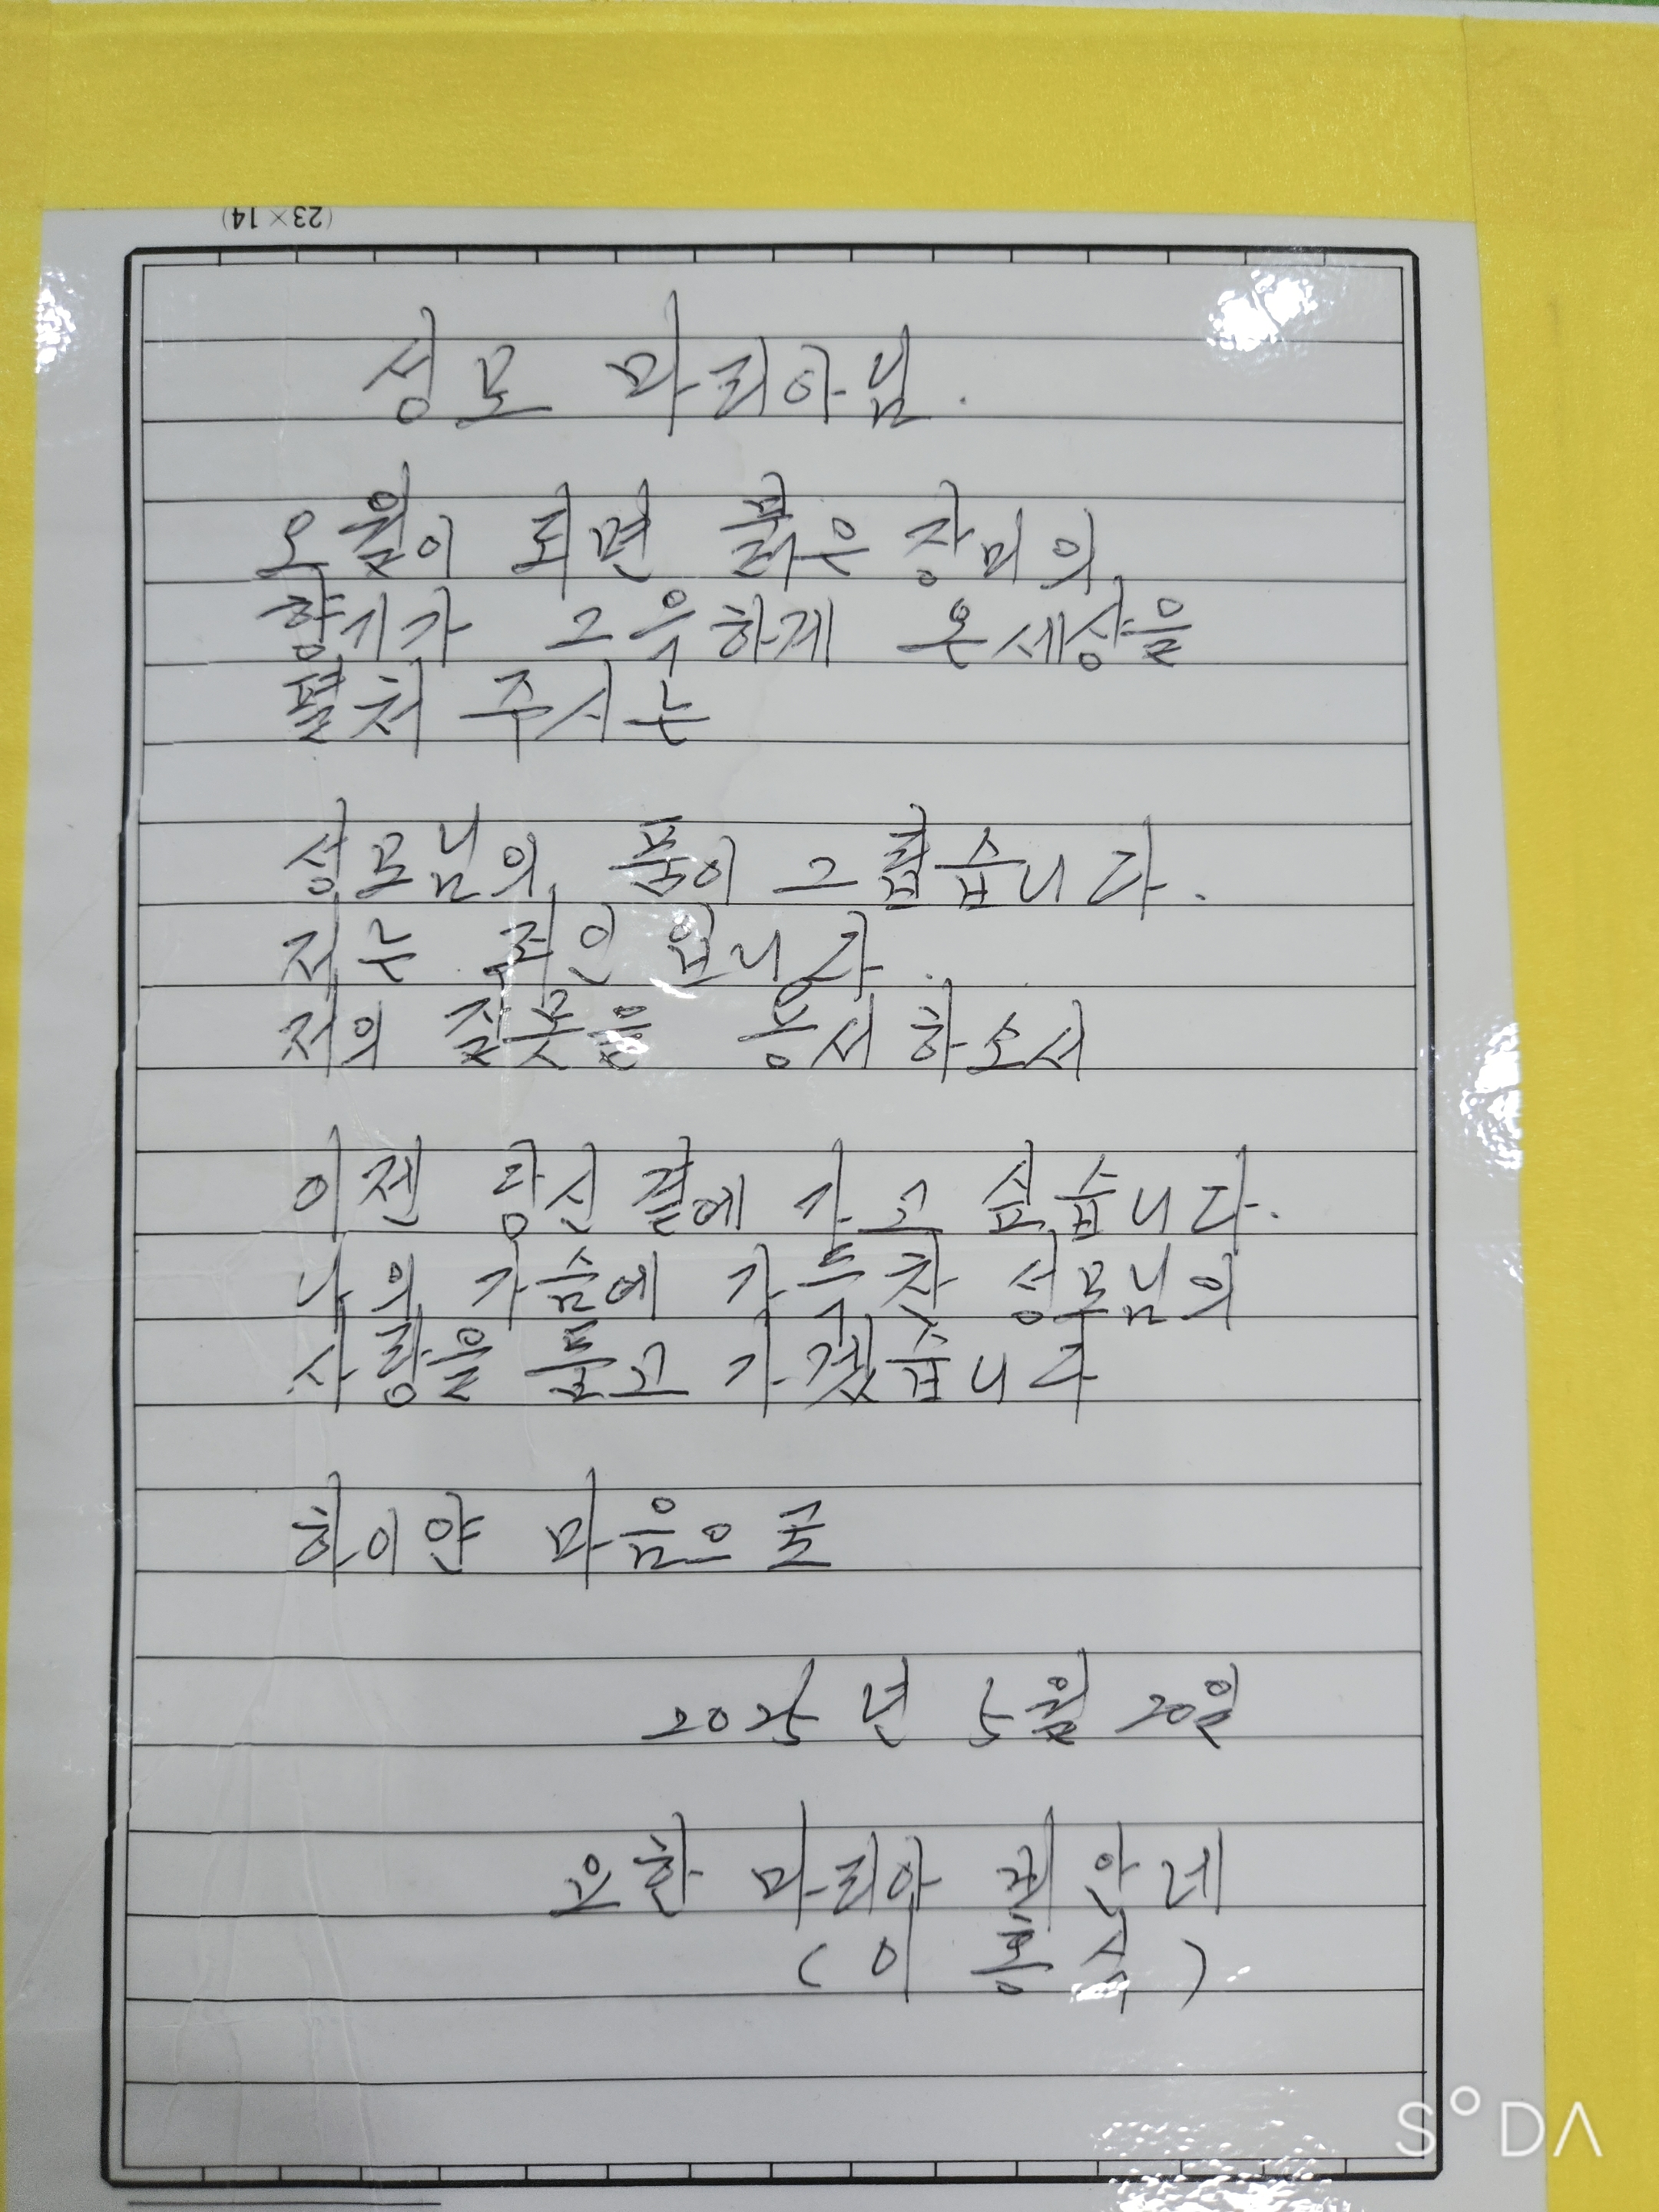 (23×14)
성모 마리아님.
오월이 되면 붉은 장미의
향기가 그윽하게 온세상을
펼처 주시는
성모님의 품이 그립습니다.
저는 죄인 입니다.
저의 잘못을 용서 하소서
이젠 당신 곁에 가고 싶습니다.
나의 가슴에 가득찬 성모님의
사랑을 들고 가겠습니다
하이얀 마음으로
2025년 5월 20일
요한 마리아 비안네
(이 흥식)
SODA